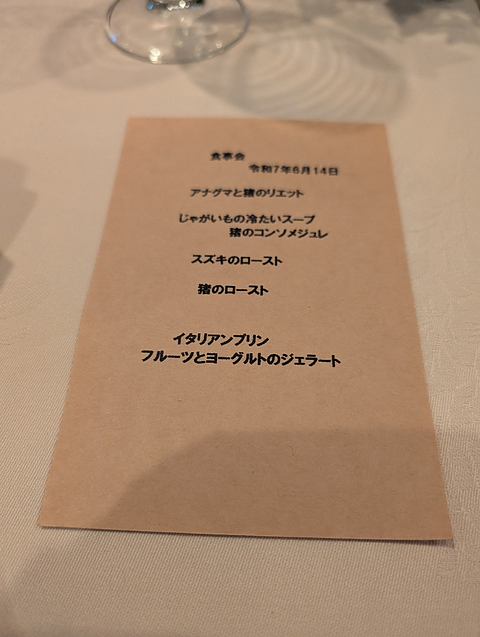 食事会
令和7年6月14日
アナグマと猪のリエット
じゃがいもの冷たいスープ
猪のコンソメジュレ
スズキのロースト
猪のロースト
イタリアンプリン
フルーツとヨーグルトのジェラート